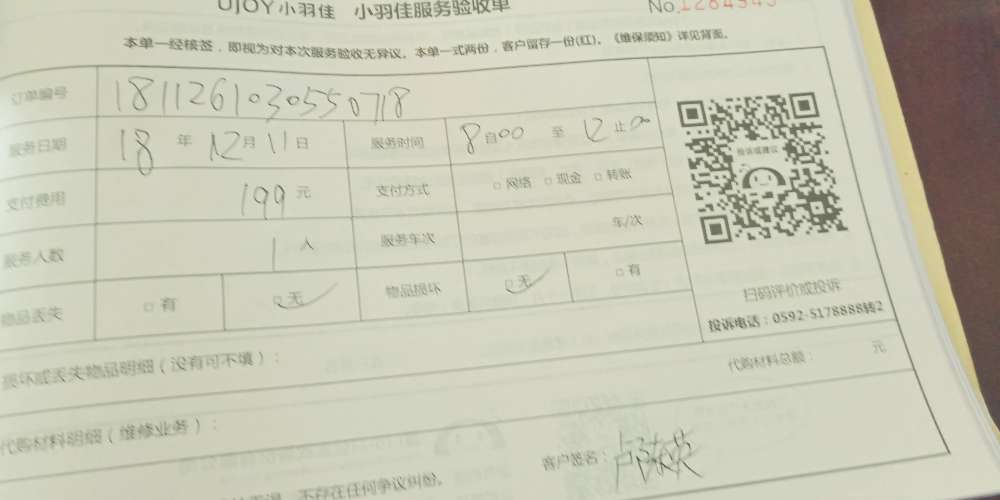 UJOY小羽佳 小羽佳服务验收单 No.1284945
本单一经核签，即视为对本次服务验收无异议。本单一式两份，客户留存一份(红)。《维保须知》详见背面。
订单编号 1811261030550718
服务日期 18 年 12月 11日 服务时间 8自00 至 12止00
支付费用 199 元 支付方式 □网络 □现金 □转账
服务人数 1 人 服务车次 车/次
物品丢失 □有 □无 物品损坏 □无 □有
扫码评价或投诉
投诉或建议
投诉电话：0592-5178888转2
损坏或丢失物品明细（没有可不填）：
代购材料总额： 元
代购材料明细（维修业务）：
客户签名：
不存在任何争议纠纷。